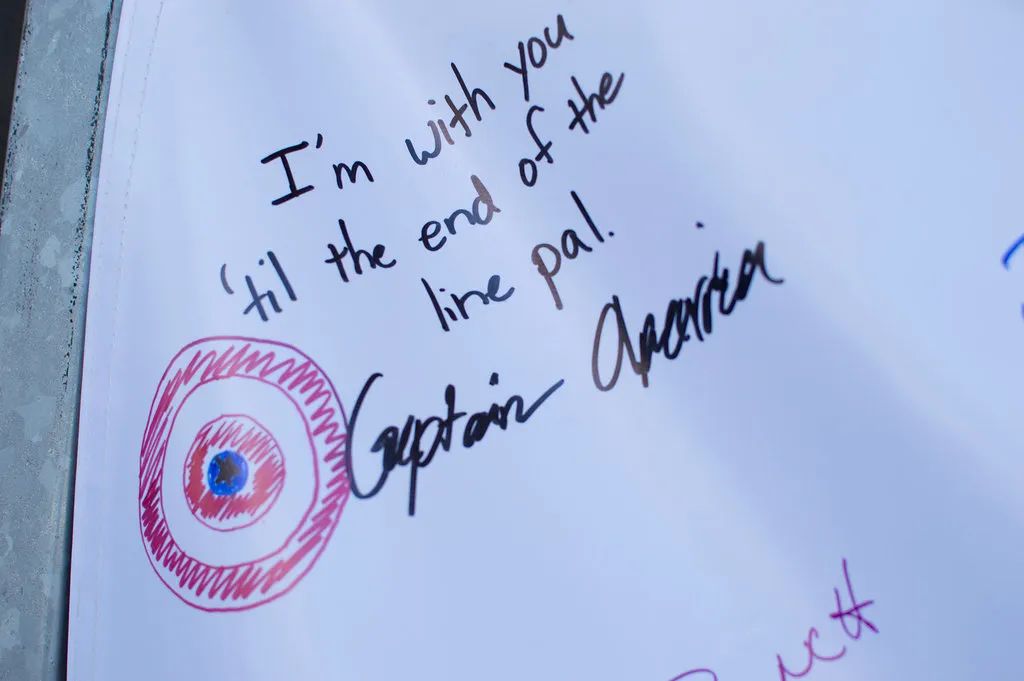 I'm with you
'til the end of the
line pal.
Captain America